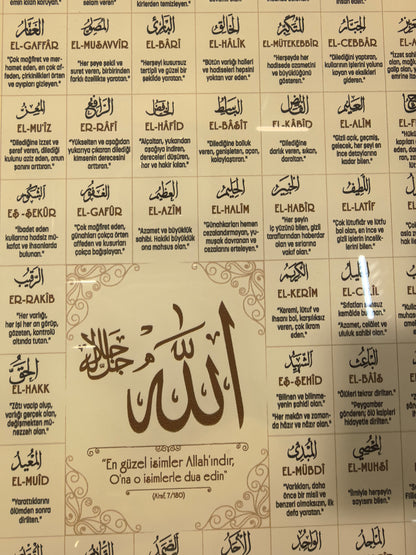 emin kılan koruyan."
selam veren."
kirlerden temizleyen."
الغفار
EL-GAFFÂR
"Çok mağfiret ve mer-
hamet eden, en çok af-
feden, çirkinlikleri örten
ve ayıpları gizleyen."
المصور
EL-MUSAVVİR
"Her şeye şekil ve
suret veren, birbirinden
farklı özellikte yaratan."
البارئ
EL-BÂRİ
"Herşeyi kusursuz
tertipli ve güzel bir
şekilde yaratan."
الخالق
EL-HÂLIK
"Bütün varlığı halleri
ve hadiseleri hepsini
yoktan var eden."
المتكبر
EL-MÜTEKEBBİR
"Herşeyde her
hadisede azametini
ve büyüklüğünü
gösteren."
الجبار
EL-CEBBÂR
"Dilediğini yaptıran,
kullarının işlerini yoluna
koyan ve eksikleri
gideren."
المعز
EL-MU'İZ
"Dilediğine izzet ve
şeref veren, dilediği
kulunu aziz eden, onun
şanını arttıran."
الرافع
ER-RAFİ
"Yükselten ve aşağıdan
yukarıya çıkaran dilediği
kimsenin derecesini
arttıran."
الخافض
EL-HÂFID
"Alçaltan, yukarıdan
aşağıya indiren,
dereceleri düşüren,
hor ve hakir kılan."
الباسط
EL-BÂSIT
"Dilediğine bolluk
veren, genişleten, açan,
kolaylaştıran."
القابض
EL-KÂBID
"Dilediğine
darlık veren, sıkan,
daraltan."
العليم
EL-ALİM
"Gizli açık, geçmiş,
gelecek, her şeyi en
ince detaylarına
kadar bilen."
الشكور
EŞ-ŞEKÛR
"İbadet eden
kullarına hadsiz mü-
kafat ve ihsanlarda
bulunan."
الغفور
EL-GAFÛR
"Çok mağfiret eden,
günahları çokça örten
affeden ve kusurları
çokça bağışlayan."
العظيم
EL-AZÎM
"Azamet ve büyüklük
sahibi. Hakiki büyüklük
ona mahsus olan."
الحليم
EL-HALİM
"Günahkârları hemen
cezalandırmayan, yu-
muşak davranan ve
cezalarını erteleyen."
الخبير
EL-HABİR
"Her şeyin
iç yüzünü bilen, gizli
taraflarından haberdar
olan ve sırlarına
vakıf olan."
اللطيف
EL-LATİF
"Çok lütufidir ve lütfu
bol olan, en ince ve
gizli işlerin incelik-
lerini bilen."
الرقيب
ER-RAKİB
"Her varlığı,
her işi her an görüp,
gözeten, kontrolü
altında tutan."
الكريم
EL-KERÎM
"Kerem, lütuf ve
ihsanı bol, karşılıksız
veren, çok ikram
eden."
"Azamet, celâlet ve
ululuk sahibi olan."
الحق
EL-HAKK
"Zâtı vacip olup,
varlığı gerçek olan,
değişmekten mü-
nezzeh olan."
الله
جل جلاله
"En güzel isimler Allah'ındır,
O'na o isimlerle dua edin"
(A'raf, 7/180)
الشهيد
EŞ-ŞEHİD
"Bilinen ve bilinme-
yenin şahidi olan."
"Her mekân ve zaman-
da hâzır ve nâzır olan."
الباعث
EL-BÂİS
"Ölüleri tekrar dirilten."
"Peygamber
gönderen; ölü kalpleri
hidayetle dirilten."
المعيد
EL-MUİD
"Yarattıklarını
ölümden sonra
dirilten."
المبدئ
EL-MÜBDİ
"Varlıkları, daha
önce bir misli ve benzeri
olmaksızın, ilk
defa yaratan."
المحصي
EL-MUHSİ
"İlmiyle herşeyin
sayısını bilen."
الصمد
الأحد
الواحد
الماجد